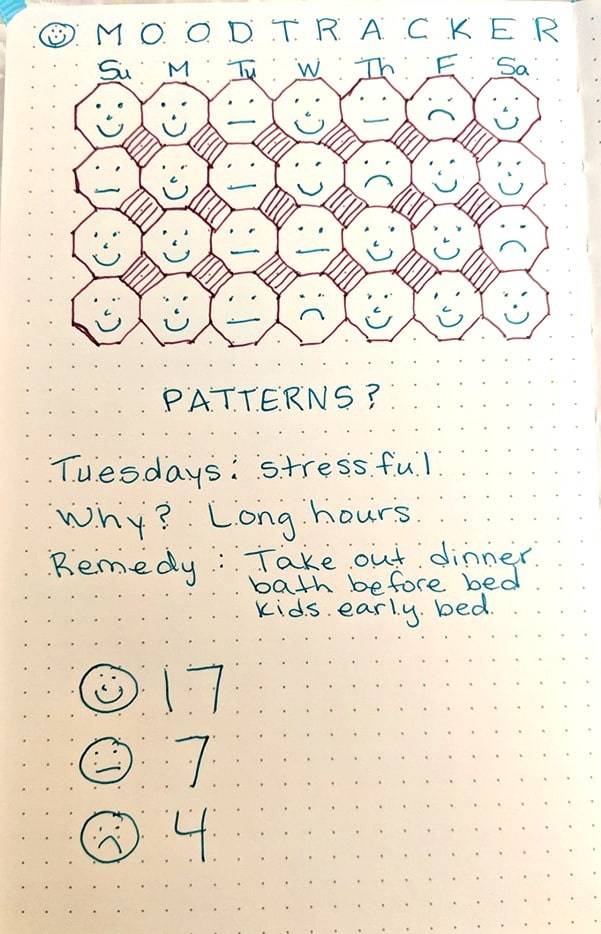 MOODTRACKER
Su M Tu W Th F Sa
PATTERNS?
Tuesdays: stressful
Why? Long hours
Remedy: Take out dinner
bath before bed
kids early bed
17
7
4